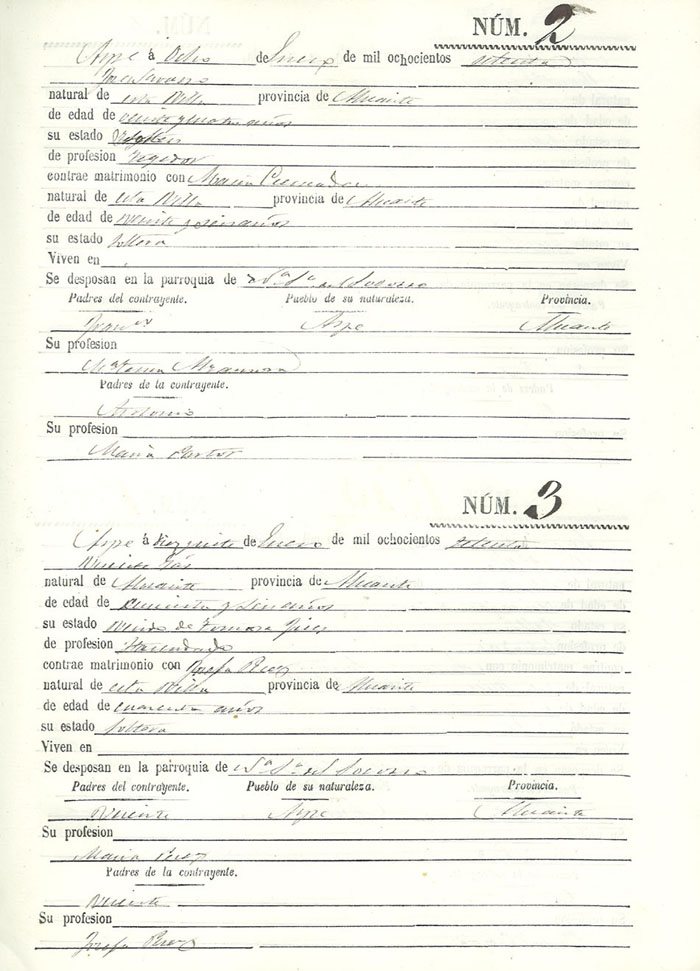 NÚM. 2
Aspe á Ocho de Enero de mil ochocientos setenta
José
natural de esta Villa provincia de Alicante
de edad de veinte y años
su estado Soltero
de profesion Tegedor
contrae matrimonio con Maria
natural de esta Villa provincia de Alicante
de edad de veinte y seis años
su estado soltera
Viven en
Se desposan en la parroquia de Nª Sª del Socorro
Padres del contrayente. Pueblo de su naturaleza. Provincia.
Franco Aspe Alicante
Su profesion
Padres de la contrayente.
Antonio
Su profesion
Maria
NÚM. 3
Aspe á diez y siete de Enero de mil ochocientos setenta
Vicente
natural de Alicante provincia de Alicante
de edad de cincuenta y seis años
su estado Viudo de
de profesion Hacendado
contrae matrimonio con Josefa Perez
natural de esta Villa provincia de Alicante
de edad de cuarenta años
su estado soltera
Viven en
Se desposan en la parroquia de Nª Sª del Socorro
Padres del contrayente. Pueblo de su naturaleza. Provincia.
Vicente Aspe Alicante
Su profesion
Maria Perez
Padres de la contrayente.
Vicente
Su profesion
Josefa Perez